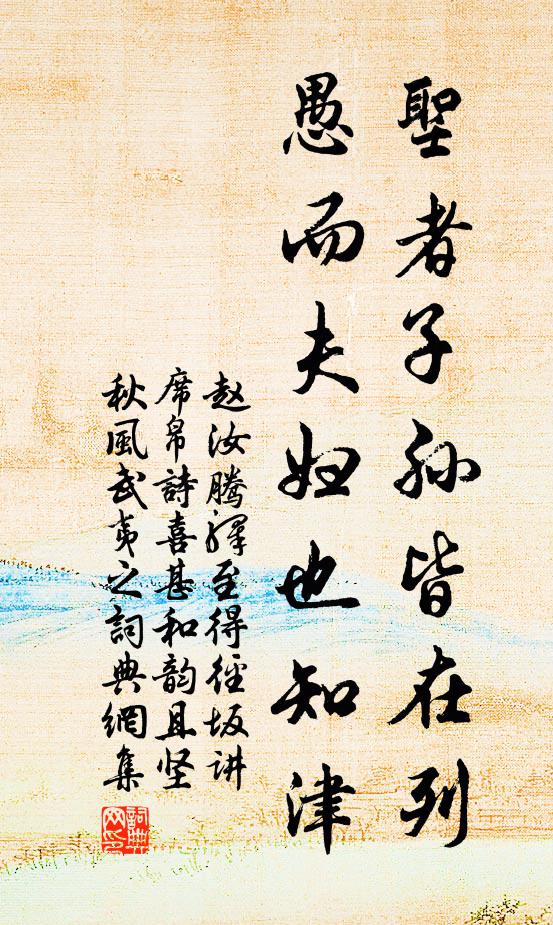 聖者子孙皆在列
愚而夫妇也知津
赵汝腾驿至得径坂讲
席帛詩喜甚和韵且坚
秋風武夷之詞典網集